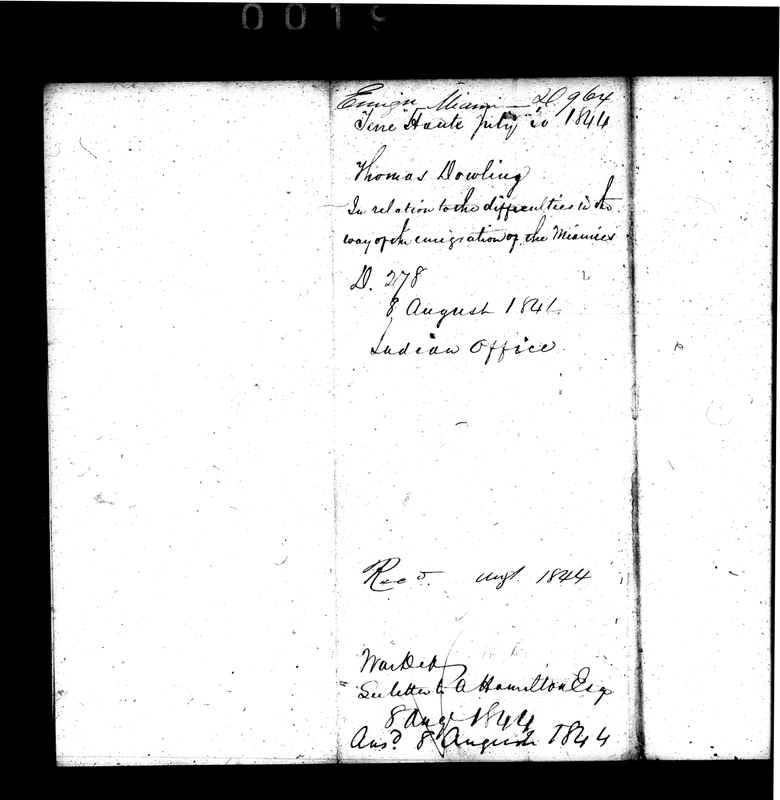 0019
Emign Miami — D 964
Terre Haute July 20 1844
Thomas Dowling
In relation to the difficulties in the
way of the emigration of the Miamies
D. 278
8 August 1844
Indian Office
Recd. Augt. 1844
War Dep
See letter to A Hamilton Esq
8 Aug 1844
Ansd 8 August 1844